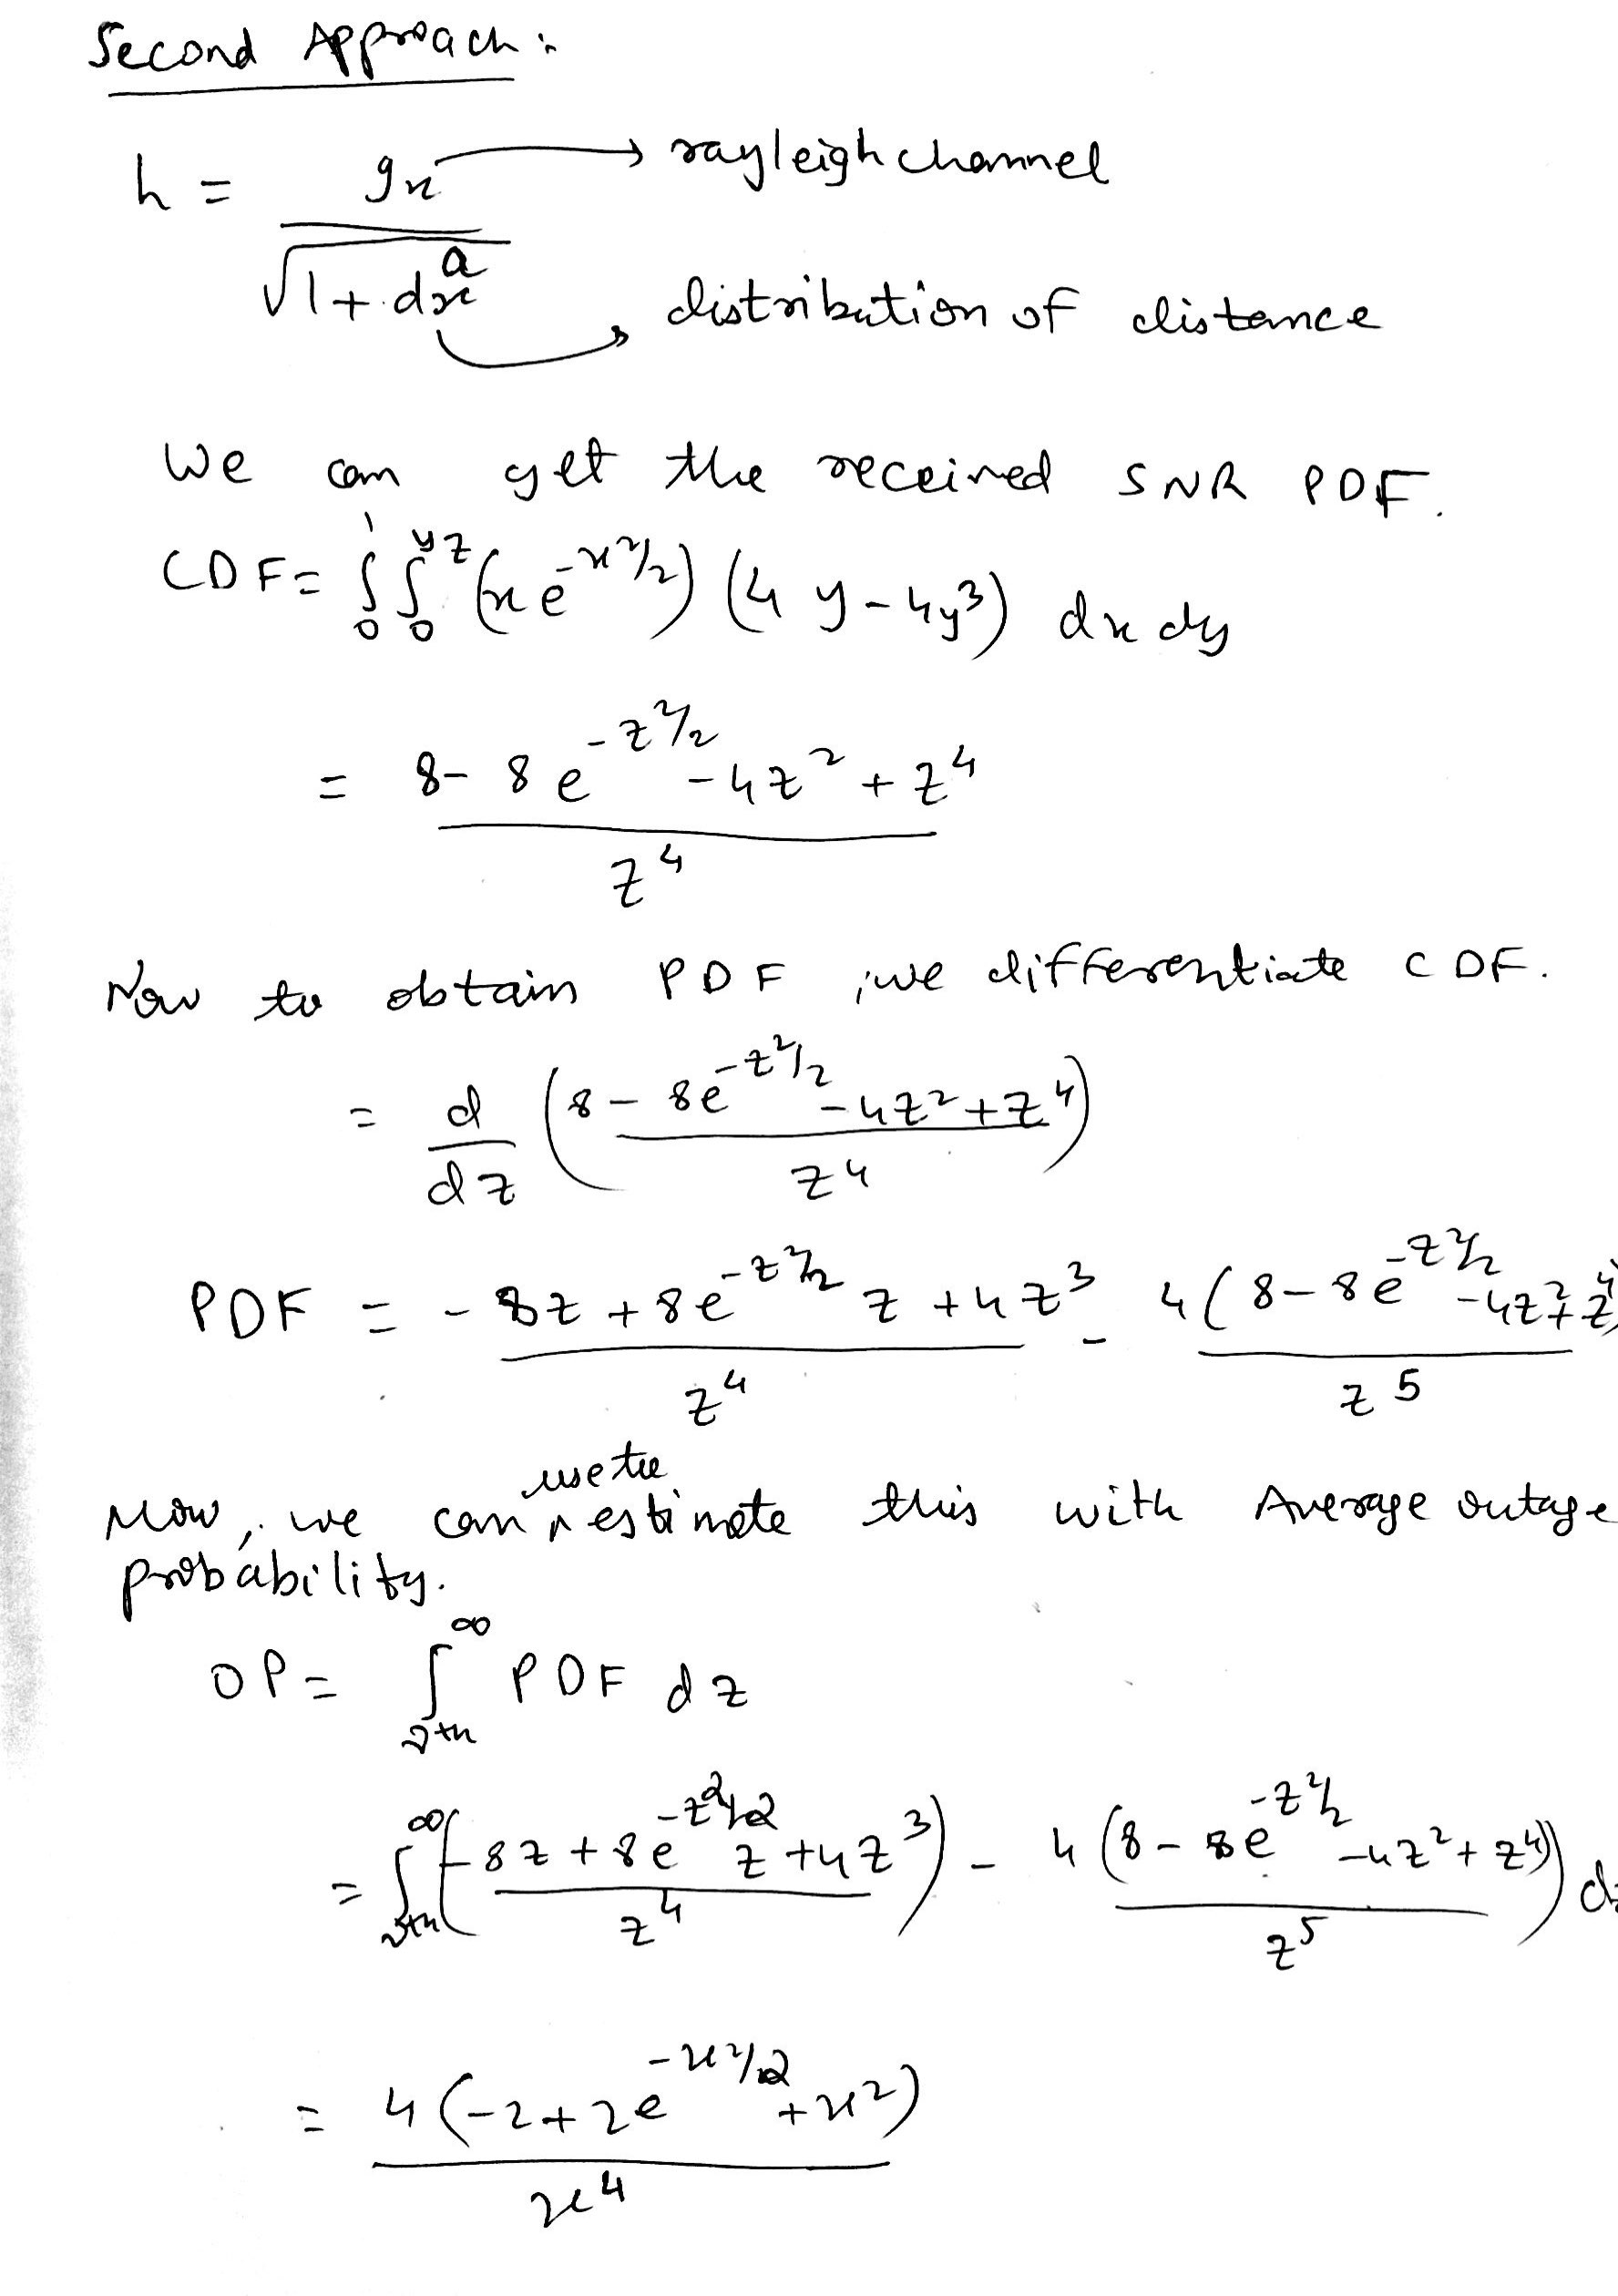 Second Approach :
h = gx / √(1 + dx^a) → rayleigh channel
→ distribution of distance
We can get the received SNR PDF.
CDF = ∫_0^1 ∫_0^{yz} (x e^{-x²/2}) (4y - 4y³) dx dy
= (8 - 8e^{-z²/2} - 4z² + z⁴) / z⁴
Now to obtain PDF, we differentiate CDF.
= d/dz ((8 - 8e^{-z²/2} - 4z² + z⁴) / z⁴)
PDF = (-8z + 8e^{-z²/2} z + 4z³) / z⁴ - 4(8 - 8e^{-z²/2} - 4z² + z⁴) / z⁵
Now, we can use the estimate this with Average outage
probability.
OP = ∫_{γth}^∞ PDF dz
= ∫_{γth}^∞ ((-8z + 8e^{-z²/2} z + 4z³) / z⁴) - 4(8 - 8e^{-z²/2} - 4z² + z⁴) / z⁵) d
= 4(-2 + 2e^{-x²/2} + x²) / x⁴